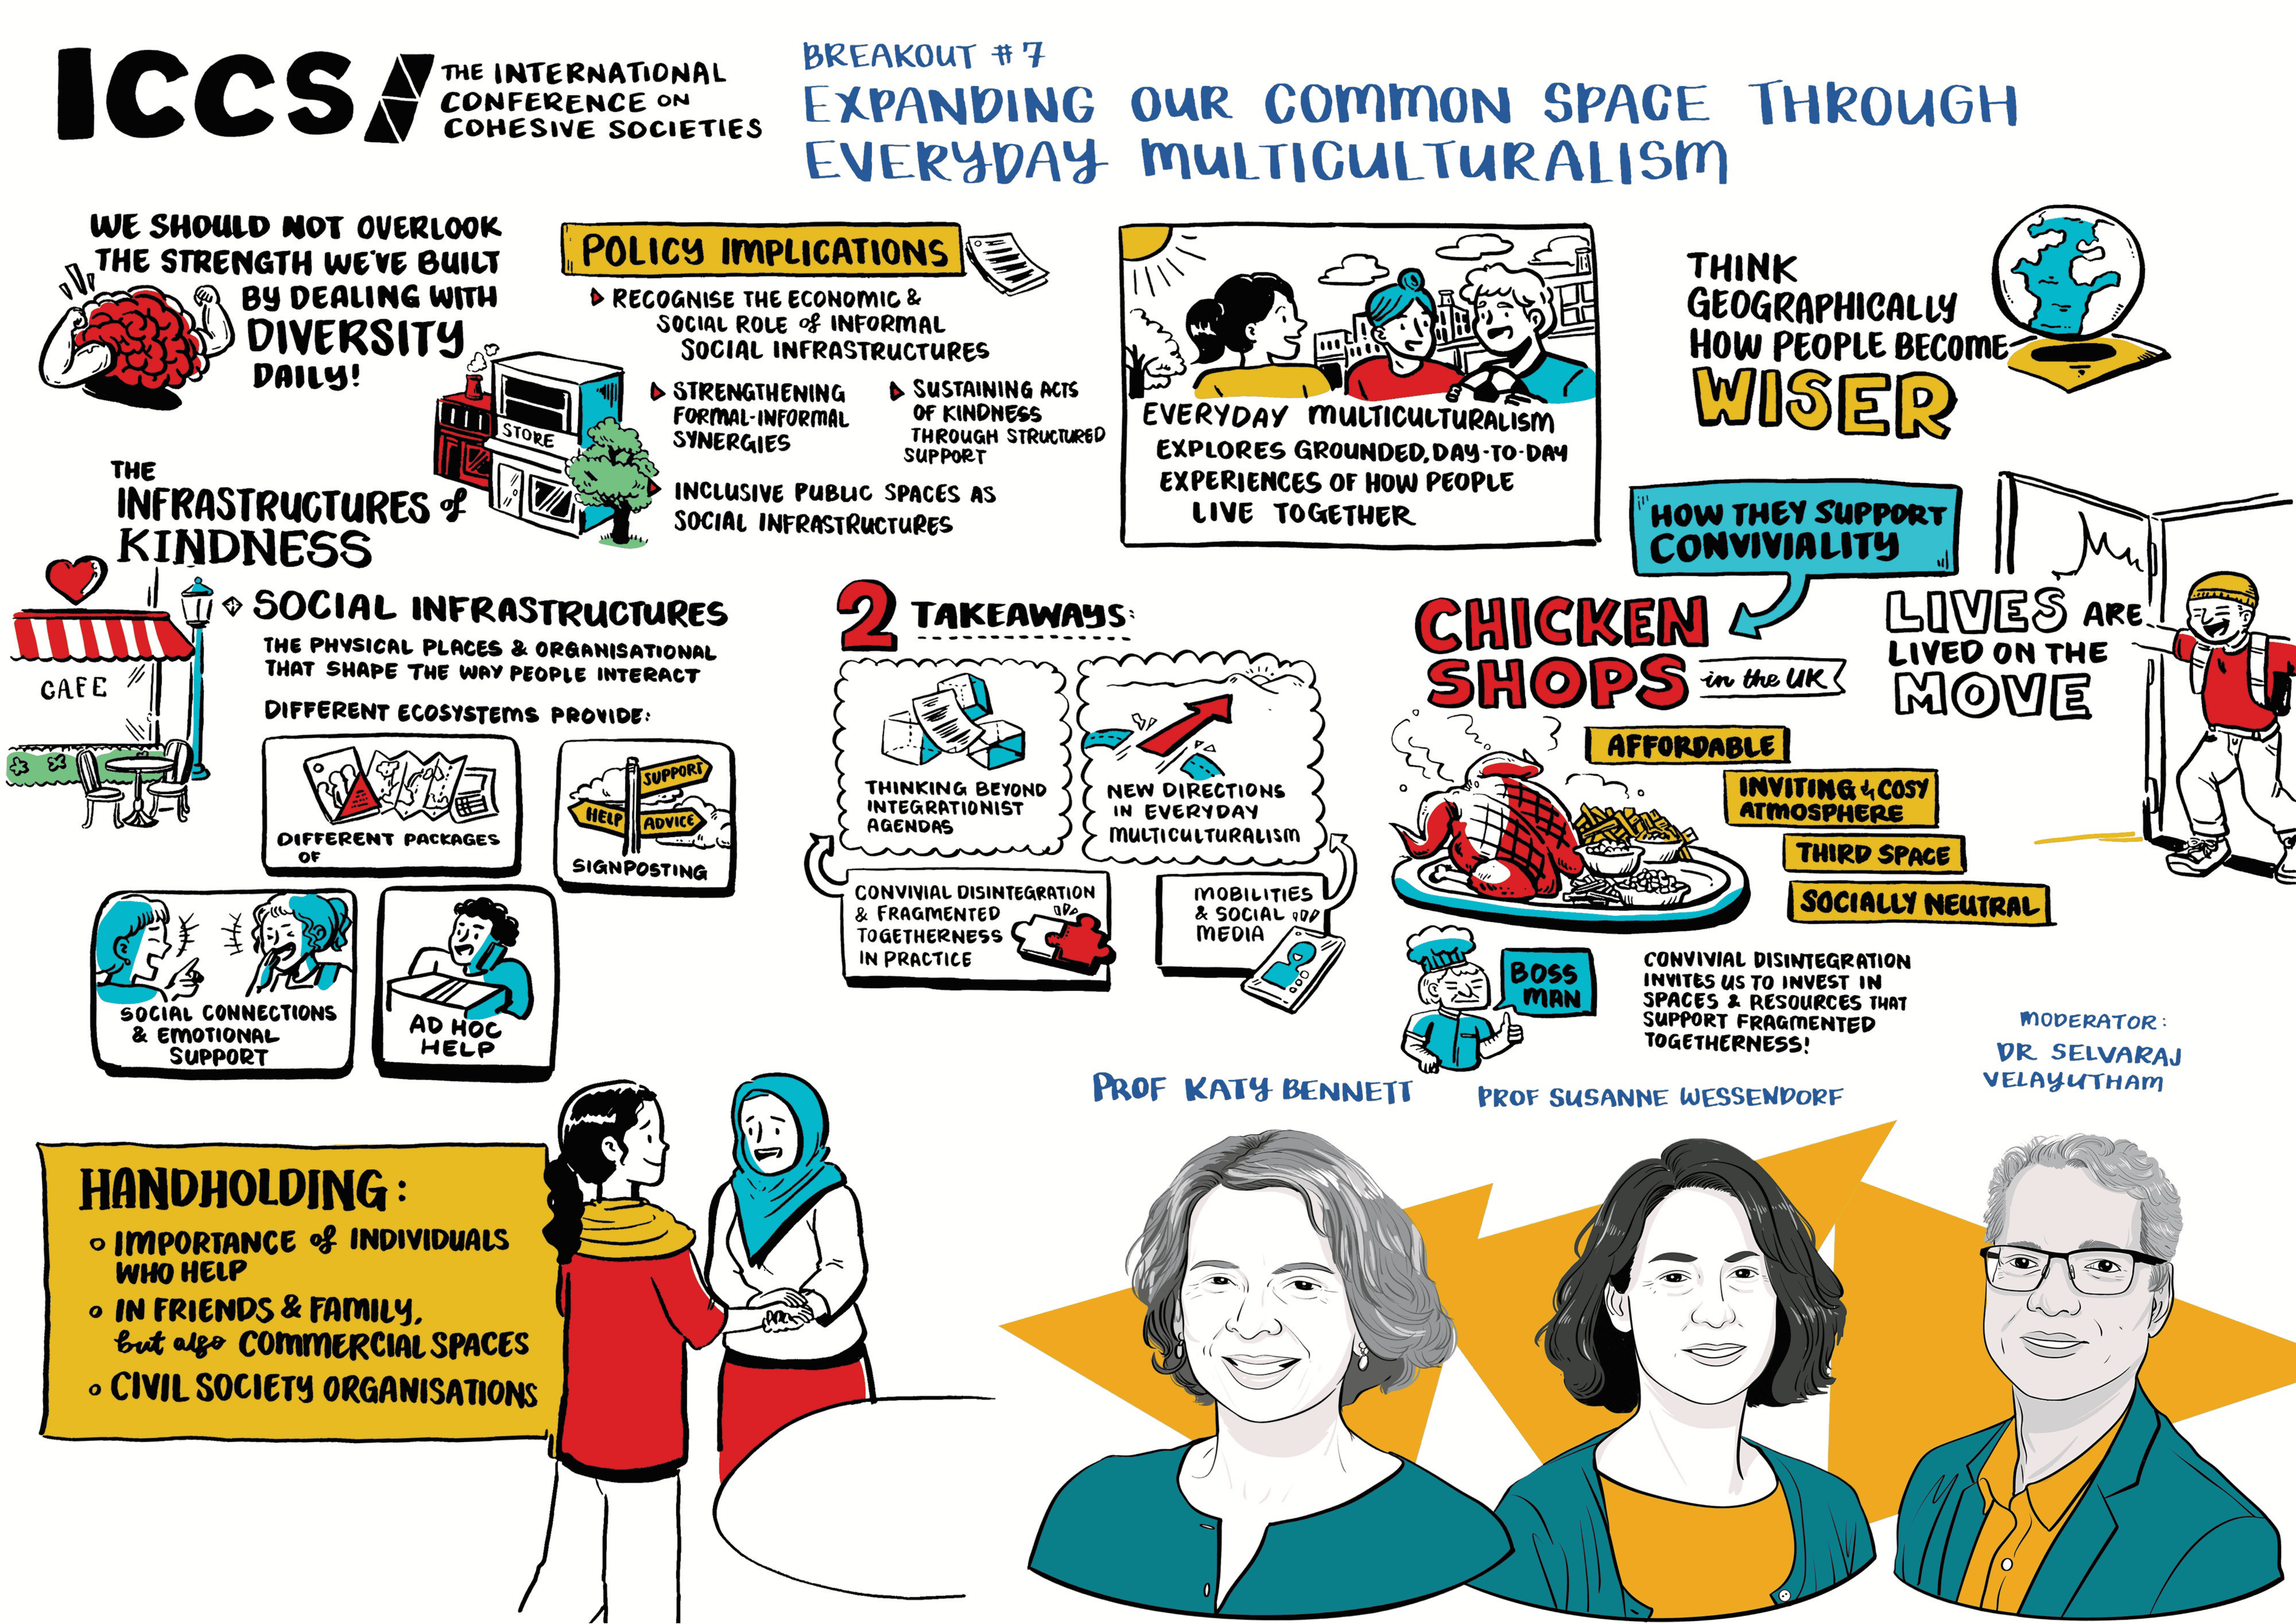 ICCS
THE INTERNATIONAL
CONFERENCE ON
COHESIVE SOCIETIES
BREAKOUT #7
EXPANDING OUR COMMON SPACE THROUGH
EVERYDAY MULTICULTURALISM
WE SHOULD NOT OVERLOOK
THE STRENGTH WE'VE BUILT
BY DEALING WITH
DIVERSITY
DAILY!
POLICY IMPLICATIONS
RECOGNISE THE ECONOMIC &
SOCIAL ROLE of INFORMAL
SOCIAL INFRASTRUCTURES
STRENGTHENING
FORMAL-INFORMAL
SYNERGIES
SUSTAINING ACTS
OF KINDNESS
THROUGH STRUCTURED
SUPPORT
INCLUSIVE PUBLIC SPACES AS
SOCIAL INFRASTRUCTURES
STORE
EVERYDAY MULTICULTURALISM
EXPLORES GROUNDED, DAY-TO-DAY
EXPERIENCES OF HOW PEOPLE
LIVE TOGETHER
THINK
GEOGRAPHICALLY
HOW PEOPLE BECOME
WISER
THE
INFRASTRUCTURES of
KINDNESS
CAFE
SOCIAL INFRASTRUCTURES
THE PHYSICAL PLACES & ORGANISATIONAL
THAT SHAPE THE WAY PEOPLE INTERACT
DIFFERENT ECOSYSTEMS PROVIDE:
DIFFERENT PACKAGES
OF
SUPPORT
HELP
ADVICE
SIGNPOSTING
SOCIAL CONNECTIONS
& EMOTIONAL
SUPPORT
AD HOC
HELP
2 TAKEAWAYS:
THINKING BEYOND
INTEGRATIONIST
AGENDAS
NEW DIRECTIONS
IN EVERYDAY
MULTICULTURALISM
CONVIVIAL DISINTEGRATION
& FRAGMENTED
TOGETHERNESS
IN PRACTICE
MOBILITIES
& SOCIAL
MEDIA
HOW THEY SUPPORT
CONVIVIALITY
CHICKEN
SHOPS in the UK
AFFORDABLE
INVITING & COSY
ATMOSPHERE
THIRD SPACE
SOCIALLY NEUTRAL
LIVES ARE
LIVED ON THE
MOVE
BOSS
MAN
CONVIVIAL DISINTEGRATION
INVITES US TO INVEST IN
SPACES & RESOURCES THAT
SUPPORT FRAGMENTED
TOGETHERNESS!
HANDHOLDING:
IMPORTANCE of INDIVIDUALS
WHO HELP
IN FRIENDS & FAMILY,
but also COMMERCIAL SPACES
CIVIL SOCIETY ORGANISATIONS
PROF KATY BENNETT
PROF SUSANNE WESSENDORF
MODERATOR:
DR SELVARAJ
VELAYUTHAM